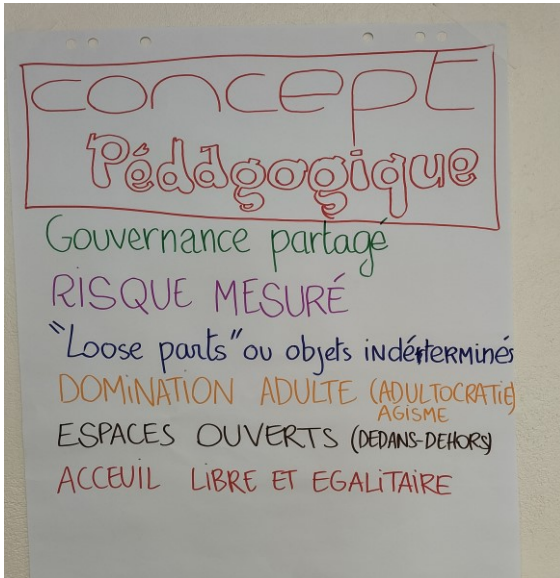 concept
Pédagogique
Gouvernance partagé
RISQUE MESURÉ
"Loose parts" ou objets INDÉTERMINÉS
DOMINATION ADULTE (ADULTOCRATIE)
AGISME
ESPACES OUVERTS (DEDANS-DEHORS)
ACCEUIL LIBRE ET EGALITAIRE